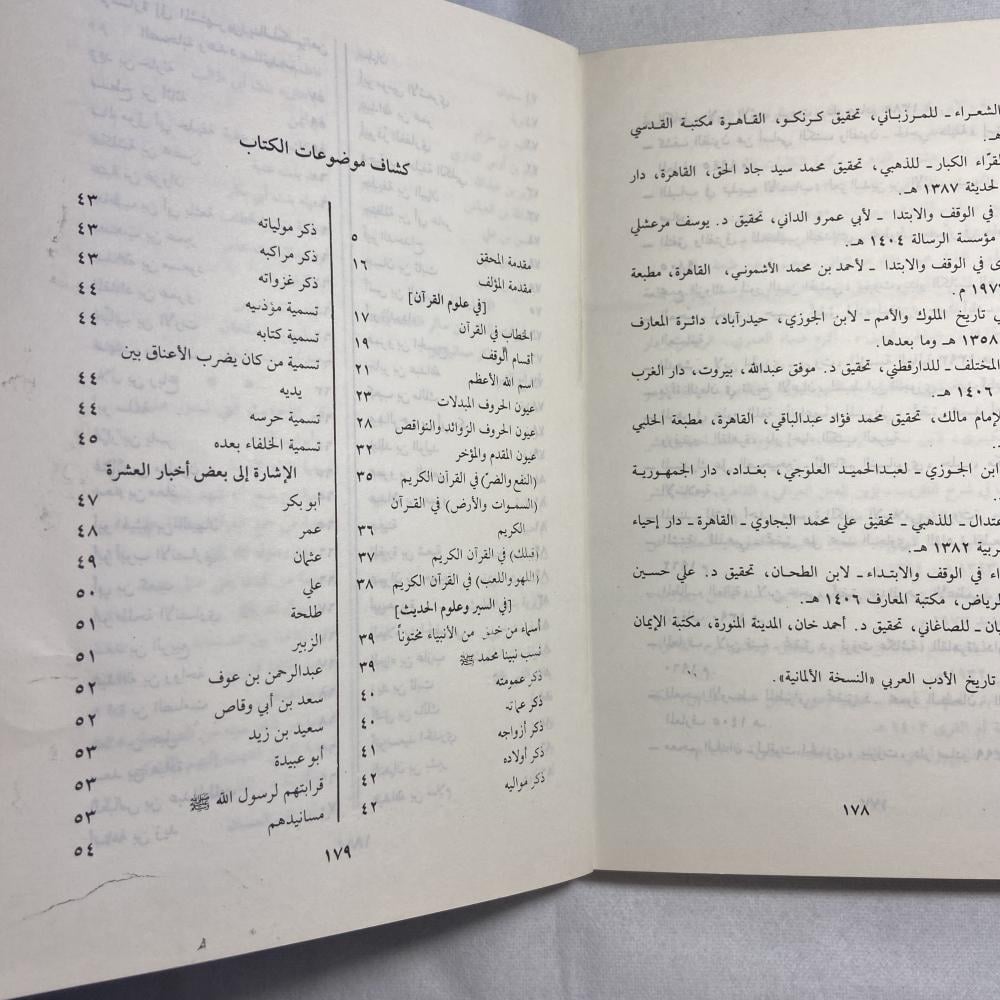 الشعراء ـ للمرزباني، تحقيق كرنكو، القاهرة مكتبة القدسي
هـ.
القرّاء الكبار ـ للذهبي، تحقيق محمد سيد جاد الحق، القاهرة، دار
الحديثة ١٣٨٧ هـ.
في الوقف والابتدا ـ لأبي عمرو الداني، تحقيق د. يوسف مرعشلي
مؤسسة الرسالة ١٤٠٤ هـ.
في الوقف والابتدا ـ لأحمد بن محمد الأشموني، القاهرة، مطبعة
م.
تاريخ الملوك والأمم ـ لابن الجوزي، حيدرآباد، دائرة المعارف
١٣٥٨ هـ وما بعدها.
المختلف ـ للدارقطني، تحقيق د. موفق عبدالله، بيروت، دار الغرب
١٤٠٦ هـ.
لإمام مالك، تحقيق محمد فؤاد عبدالباقي، القاهرة، مطبعة الحلبي
ابن الجوزي ـ لعبدالحميد العلوجي، بغداد، دار الجمهورية
عتدال ـ للذهبي ـ تحقيق علي محمد البجاوي ـ القاهرة ـ دار إحياء
ربية ١٣٨٢ هـ.
اء في الوقف والابتداء ـ لابن الطحان، تحقيق د. علي حسين
الرياض، مكتبة المعارف ١٤٠٦ هـ.
ان ـ للصاغاني، تحقيق د. أحمد خان، المدينة المنورة، مكتبة الإيمان
تاريخ الأدب العربي «النسخة الألمانية».
١٧٨
كشاف موضوعات الكتاب
مقدمة المحقق ٥
مقدمة المؤلف ١٦
[في علوم القرآن]
الخطاب في القرآن ١٧
أقسام الوقف ١٩
اسم الله الأعظم ٢١
عيون الحروف المبدلات ٢٣
عيون الحروف الزوائد والنواقص ٢٨
عيون المقدم والمؤخر ٣٢
(النفع والضرّ) في القرآن الكريم ٣٥
(السموات والأرض) في القرآن
الكريم ٣٦
(قبلك) في القرآن الكريم ٣٧
(اللهو واللعب) في القرآن الكريم ٣٨
[في السير وعلوم الحديث]
أسماء من خلق من الأنبياء مختوناً ٣٩
نسب نبينا محمد ﷺ ٣٩
ذكر عمومته ٤٠
ذكر عماته ٤٠
ذكر أزواجه ٤١
ذكر أولاده ٤٢
ذكر مواليه ٤٢
ذكر مولياته ٤٣
ذكر مراكبه ٤٣
ذكر غزواته ٤٣
تسمية مؤذنيه ٤٤
تسمية كتابه ٤٤
تسمية من كان يضرب الأعناق بين
يديه ٤٤
تسمية حرسه ٤٤
تسمية الخلفاء بعده ٤٥
الإشارة إلى بعض أخبار العشرة
أبو بكر ٤٧
عمر ٤٨
عثمان ٤٩
علي ٥٠
طلحة ٥١
الزبير ٥١
عبدالرحمن بن عوف ٥٢
سعد بن أبي وقاص ٥٢
سعيد بن زيد ٥٣
أبو عبيدة ٥٣
قرابتهم لرسول الله ﷺ ٥٣
مسانيدهم ٥٤
١٧٩